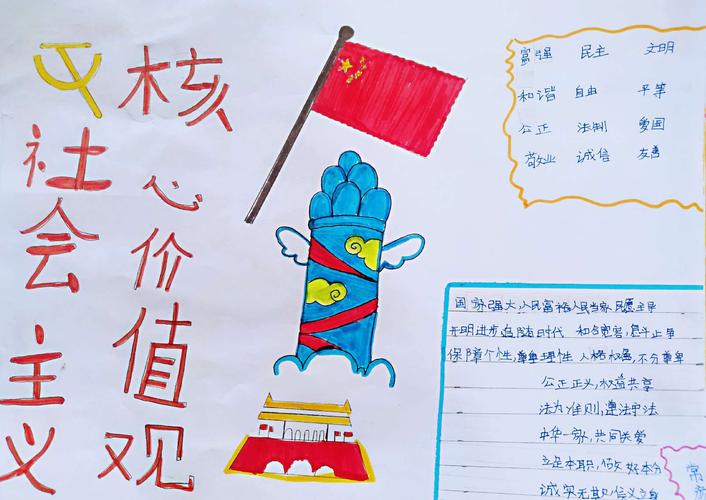 社会主义
核心价值观
富强 民主 文明
和谐 自由 平等
公正 法制 爱国
敬业 诚信 友善
国家强大,人民富裕人民当家,民愿主导
开明进步追随时代 和合宽容,息斗止争
保障个性,尊卑理性 人格权益,不分尊卑
公正正义,权益共享
法为准则,遵法守法
中华一家,共同关爱
立足本职,做好本分
诚实无欺,信义立身
常